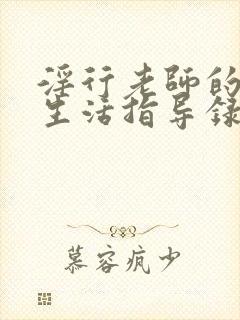 淫行老师的
生活指导録
慕容疯少